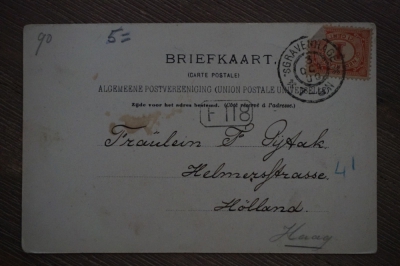 90
5=
BRIEFKAART.
(CARTE POSTALE)
ALGEMEENE POSTVEREENIGING (UNION POSTALE UNI
Zijde voor het adres bestemd. (Côté réservé à l'adresse.)
'SGRAVENHAGE
F 118
Fräulein F Pijtak
Helmersstrasse. 41
Hölland.
Haag